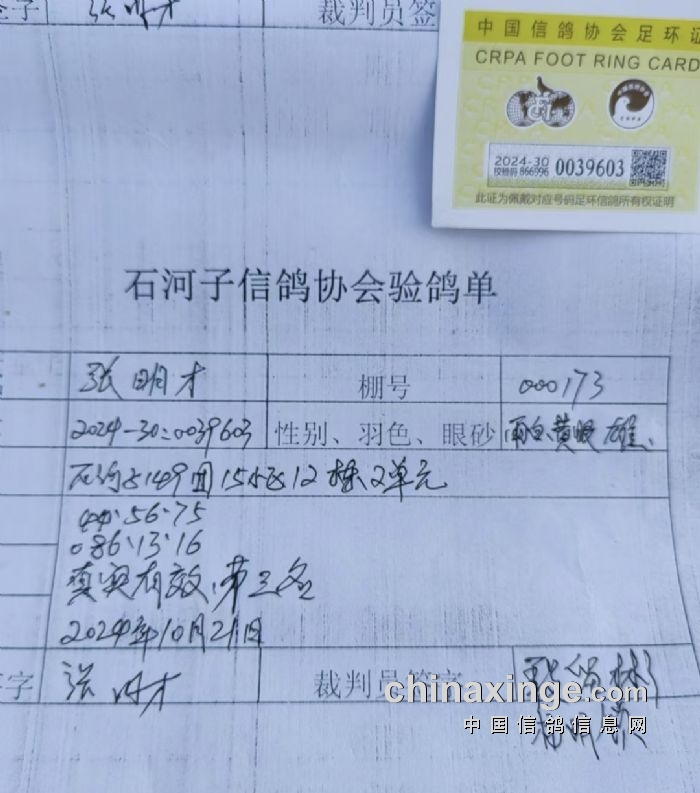 签字 张明才 裁判员签
中国信鸽协会足环证
CRPA FOOT RING CARD
2024-30
校验码 866996 0039603
此证为佩戴对应号码足环信鸽所有权证明
石河子信鸽协会验鸽单
张明才 棚号 000173
2024-30-0039603 性别、羽色、眼砂 雨白、黄眼、雄、
石河子149团15小区12栋2单元
44.56.75
086.13.16
真实有效、第三名
2024年10月21日
签字 张明才 裁判员签字
chinaxinge.com
中国信鸽信息网